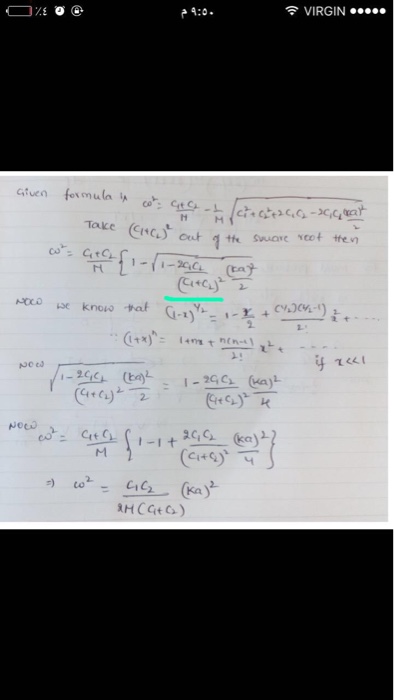 ٪٤ ٩:٥٠ م VIRGIN
Given formula is ω² = C₁+C₂/M - 1/M √(C₁²+C₂²+2C₁C₂ - 2C₁C₂ (ka)²/2)
Take (C₁+C₂)² out of the square root then
ω² = C₁+C₂/M {1 - √(1 - 2C₁C₂/(C₁+C₂)² (ka)²/2)
NOW we know that (1-x)^½ = 1 - x/2 + (½)(½-1)/2! x² + .....
∵ (1+x)ⁿ = 1+nx + n(n-1)/2! x² + ..... if x<<1
NOW
√(1 - 2C₁C₂/(C₁+C₂)² (ka)²/2) = 1 - 2C₁C₂/(C₁+C₂)² (ka)²/4
NOW
ω² = C₁+C₂/M {1 - 1 + 2C₁C₂/(C₁+C₂)² (ka)²/4}
⇒ ω² = C₁C₂/2M(C₁+C₂) (ka)²